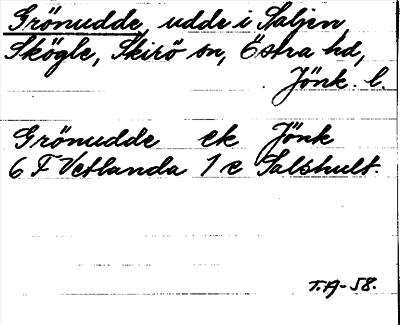 Grönudde, udde i Saljen,
Skögle, Skirö sn, Östra hd,
Jönk. l.
Grönudde ek Jönk
6 F Vetlanda 1 e Salshult.
T.A-58.